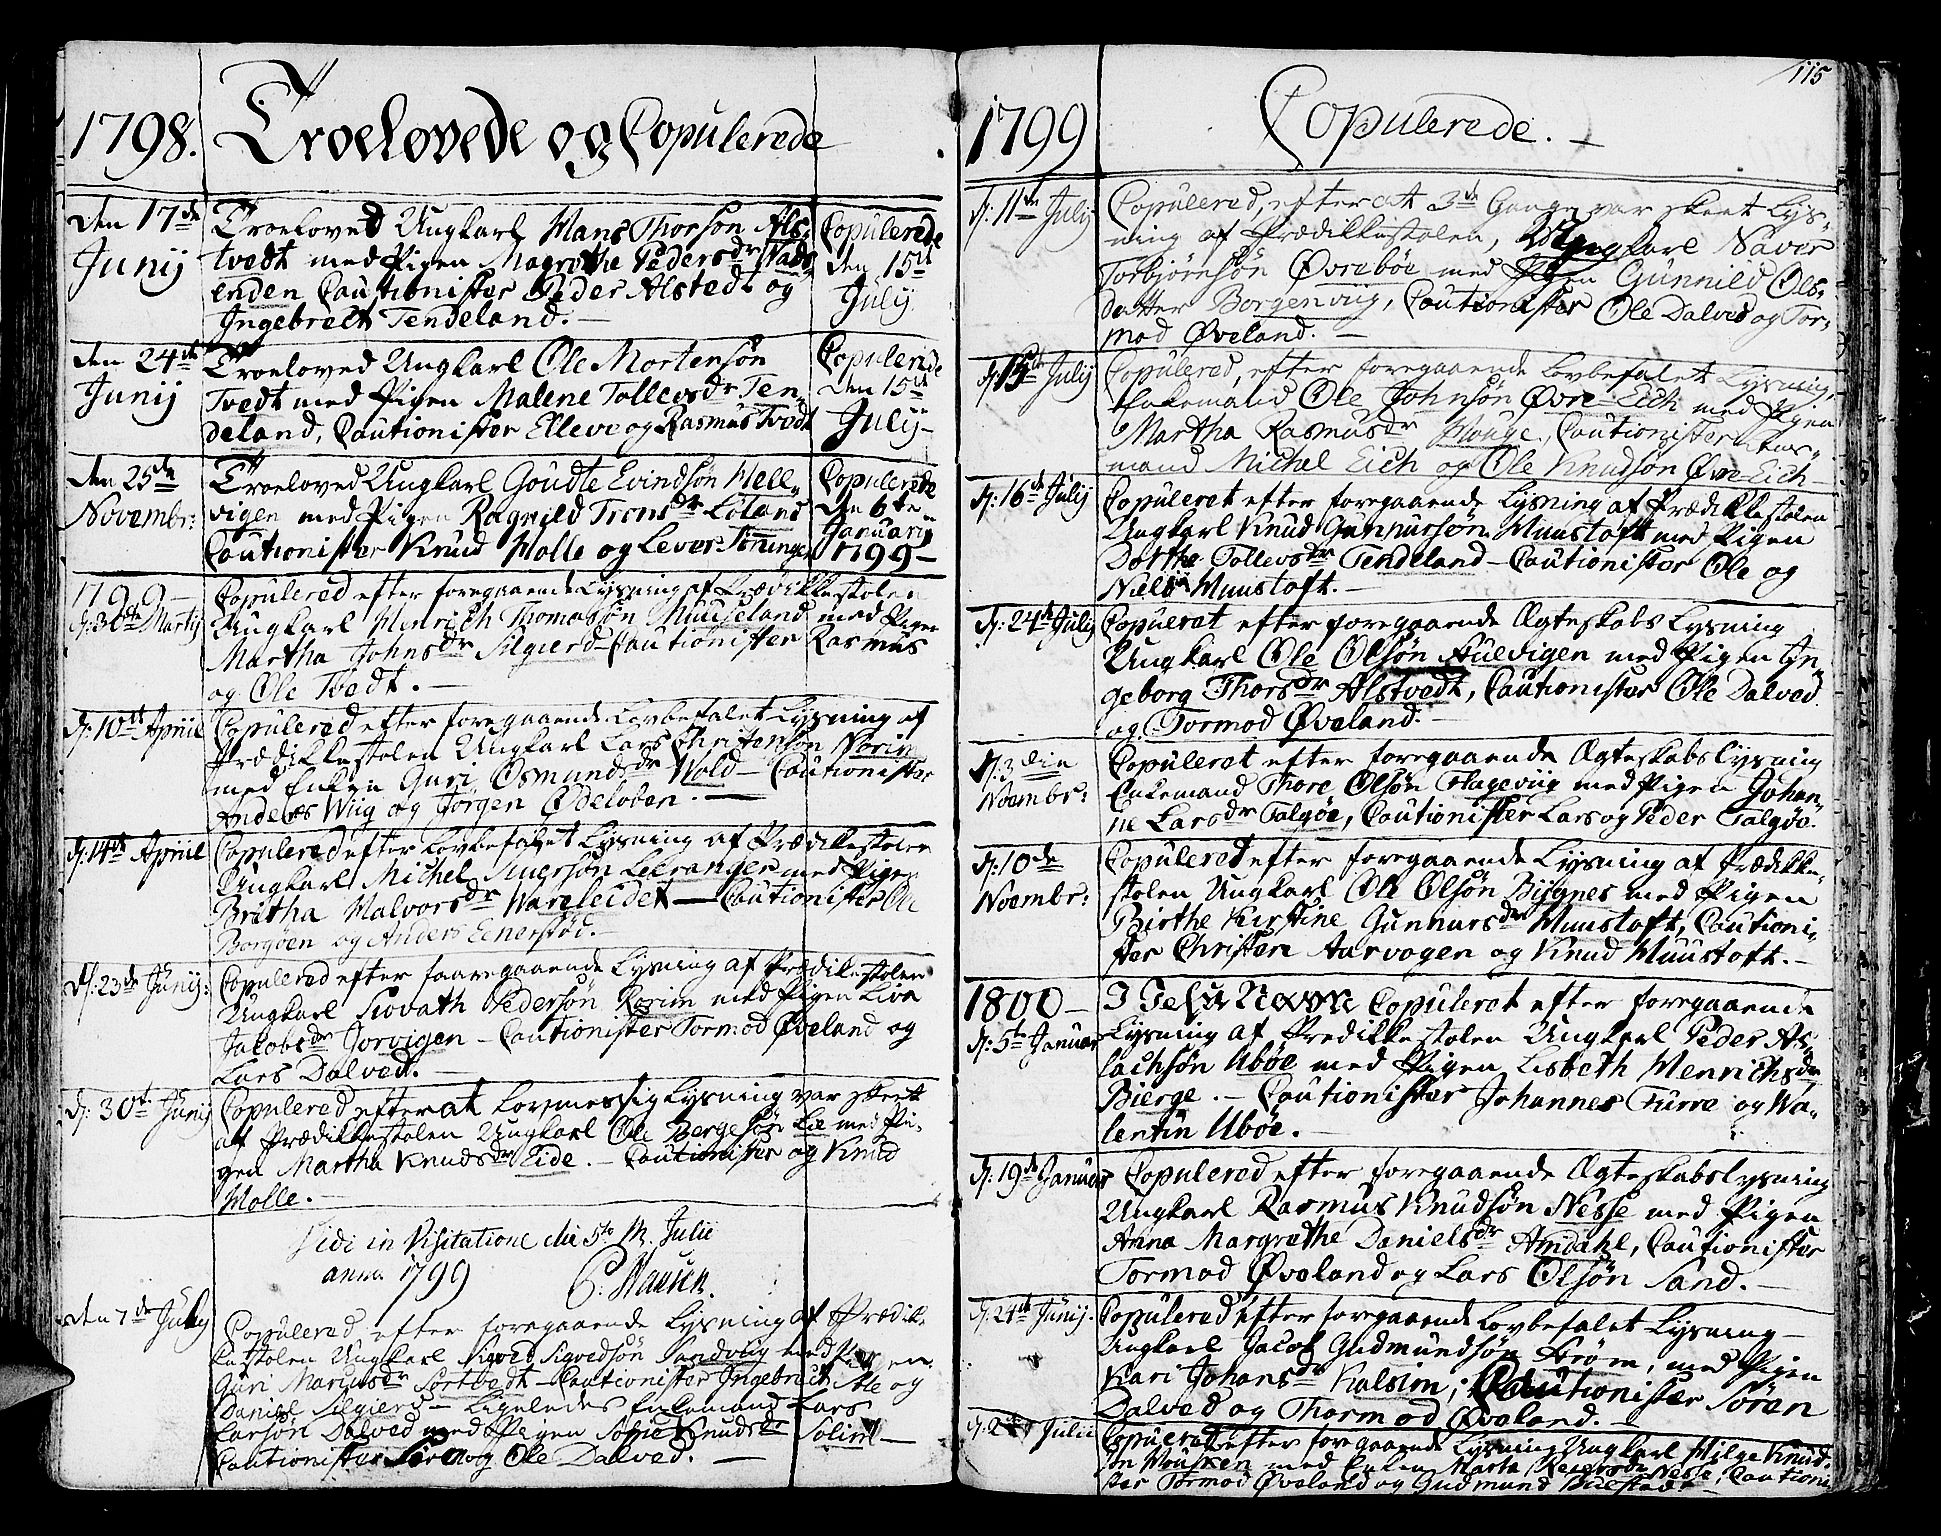 1798. Troelovede og Copulerede
Den 17de Junij
Troeloved Ungkarl Hans Thorsøn Als-
tvedt med Pigen Magrethe Pedersdr Nads-
enden Cautionister Peder Alstedt og
Ingebrelt Tendeland.
Copulerede
den 15de
Julij
Den 24de Junij
Troeloved Ungkarl Ole Mortensøn
Tvedt med Pigen Malene Tollevsdr Ten-
deland, Cautionister Elleve og Rasmus Tvedt
Copulerede
den 15de
Julij
Den 25de Novembr:
Troeloved Ungkarl Goudte Evindsøn Hell-
vigen med Pigen Ragnild Tronsdr Løland
Cautionister Knud Molle og Lever
Copulerede
den 6te
Januarij
1799
1799
d: 30te Martij
Copulered efter foregaaende Lysning af Prædikkestolen
Ungkarl Henrich Thomasøn Muuseland med Pigen
Martha Johnsdr Silgierd Cautionister Rasmus
og Ole Tvedt.
d: 10de Apriil
Copulered efter foregaaende Lovbefalet Lysning af
Prædikkestolen Ungkarl Lars Christensøn Norim
med Enken Guri Osmundsdr Wold Cautionister
Anders Wiig og Jørgen Ødeloben.
d: 14de Apriil
Copulered efter Lovbefalet Lysning af Prædikestolen
Ungkarl Michel Siversøn Leeranger med Pigen
Britha Halvorsdr Wareleidet Cautionister Ole
Borgøen og Anders Enerstød.
d: 23de Junij:
Copulered efter faaregaaende Lysning af Prædikestolen
Ungkarl Siovath Pedersøn Rorim med Pigen Liva
Jakobsdr Jorvigen Cautionister Tormod Øveland og
Lars Dalved.
d: 30te Junij
Copulered efter at Lovmessig Lysning var skeet
af Prædikkestolen Ungkarl Ole Bergesøn Lie med Pi-
gen Martha Knudsdr Eide. Cautionister og Knud
Molle.
Vidi in Visitatione die 5te M. Julii
anno 1799 P. Hansen.
Den 7de July
Copulered efter foregaaende Lysning af Prædik-
kestolen Ungkarl Sigved Sigvedsøn Sandviig med Pigen
Guri Mariusdr Sortvedt Cautionister Ingebrict Ole og
Daniel Silgierd Ligeledes Enkemand Lars
Larsøn Dalved med Pigen Sophie Knudsdr
Cautionister og Ole Dalved.
115
1799 Copulerede.
d: 11te Julij
Copulered, efter at 3de Gange var skeet Lys-
ning af Prædikkestolen, Ungkarl Naver
Torbjørnsøn Øvrebøe med Pigen Gunnild Ols-
datter Borgenviig, Cautionister Ole Dalved og Tor-
mod Øveland.
d: 15de Julij
Copulered, efter foregaaende Lovbefalet Lysning,
Enkemand Ole Johnsøn Øvre-Eich med Pigen
Martha Rasmusdr Houge, Cautionister Lens-
mand Michel Eich og Ole Knudsøn Øvre-Eich
d: 16de Julij
Copuleret efter foregaaende Lysning af Prædikkestolen
Ungkarl Knud Gunnursøn Muustoft med Pigen
Dorthe Tollevsdr Tendeland Cautionister Ole og
Niels Muustoft.
d: 24de Julij
Copuleret efter foregaaende Ægteskabs Lysning
Ungkarl Ole Olsøn Huevigen med Pigen In-
geborg Thorsdr Alstvedt, Cautionister Ole Dalved
og Tormod Øveland.
d: 3die
Noembr:
Copuleret efter foregaaende Ægteskabslysning
Enkemand Thore Olsøn Hageviig med Pigen Johan-
ne Larsdr Talgøe, Cautionister Lars og Peder Talgøe.
d: 10de
Noembr:
Copulered efter foregaaende Lysning af Prædikke-
stolen Ungkarl Ole Olsøn Biisgnes med Pigen
Birthe Kirstine Gunnursdr Muustoft, Cautioni-
ster Christen Aarvogen og Knud Muustoft.
1800
d: 5te Januar
I Jesu Navn Copuleret efter foregaaende
Lysning af Predikkestolen Ungkarl Peder As-
lachsøn Ubøe med Pigen Lisbeth Henrichsdr
Bierge. Cautionister Johannes Furre og Va-
lentin Ubøe.
d: 19de Januar
Copulered efter foregaaende Ægteskabslysning
Ungkarl Rasmus Knudsøn Nesse med Pigen
Anna Margrethe Danielsdr Amdahl, Cautionister
Tormod Øveland og Lars Olsøn Sand.
d: 24de Junij.
Copulered efter foregaaende Lovbefalet Lysning
Ungkarl Jacob Gudmundsøn Strøm, med Pigen
Kari Johansdr Kalsim, Cautionister Søren
Dalved og Thormod Øveland.
d: Julii
Copulered efter foregaaende Lysning Ungkarl Hilge Knud-
søn med Enken Marta Nesse, Cautioni-
ster Tormod Øveland og Gudmund